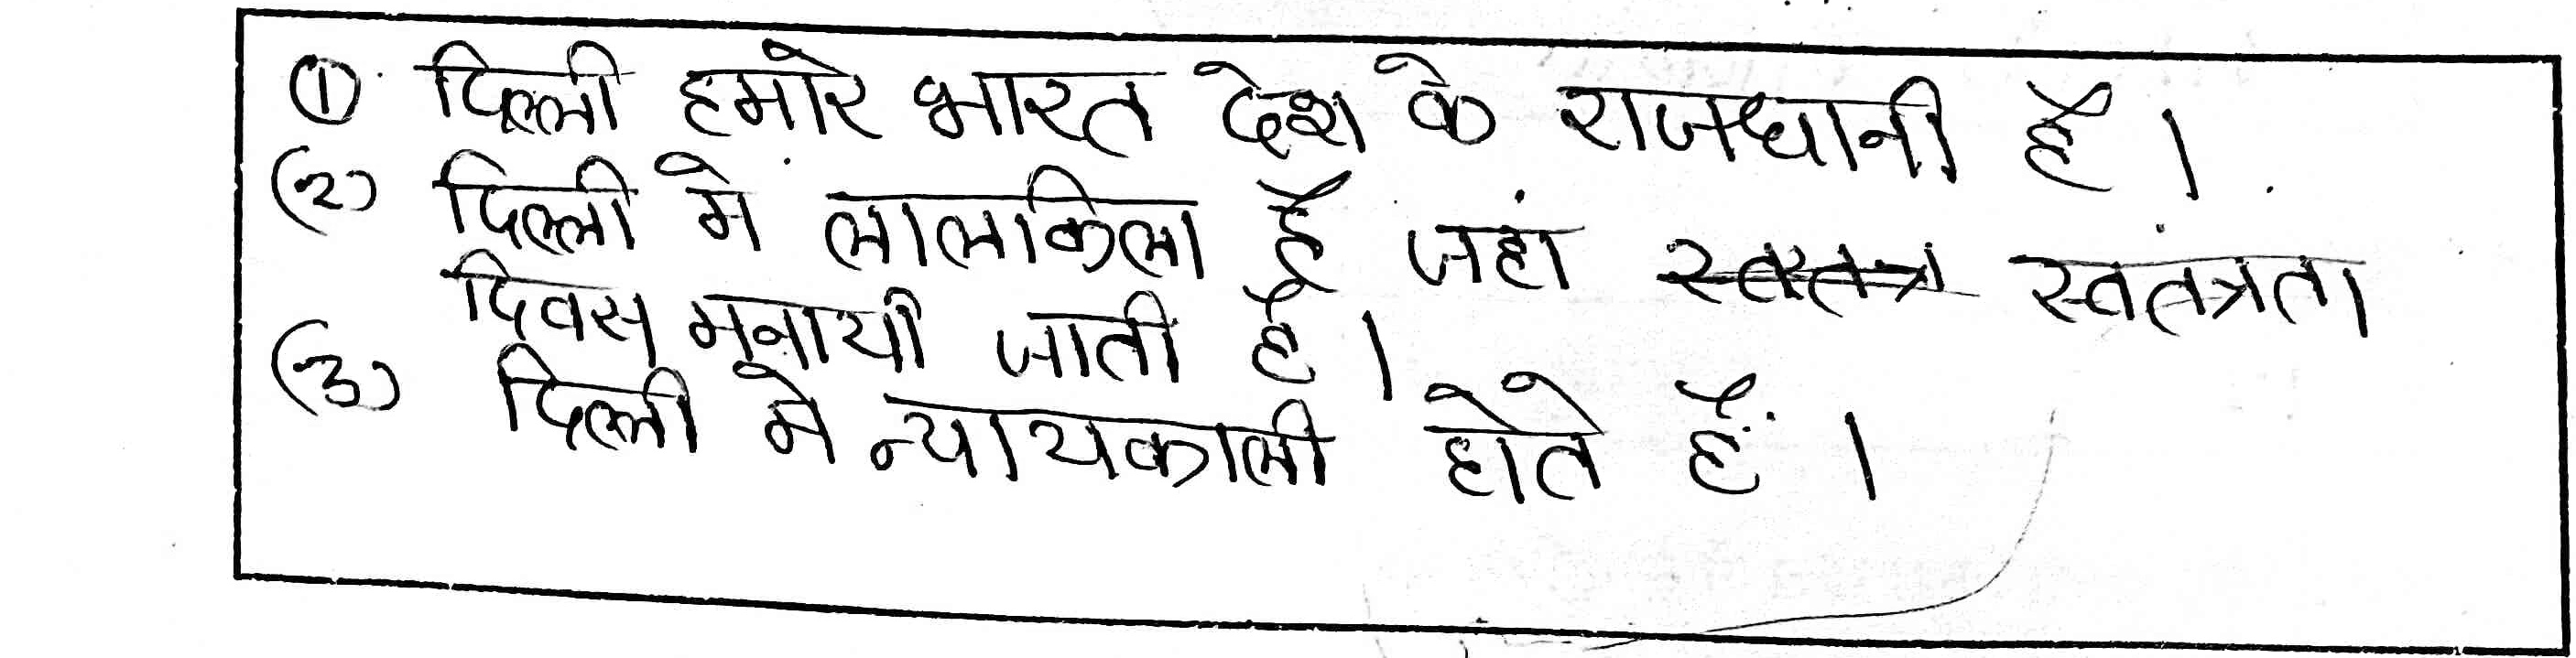 ① दिल्ली हमारे भारत देश के राजधानी है।
(२) दिल्ली में लालकिला है जहां स्वतंत्रता
दिवस मनायी जाती है।
(३) दिल्ली मे न्यायकाली होते हैं।